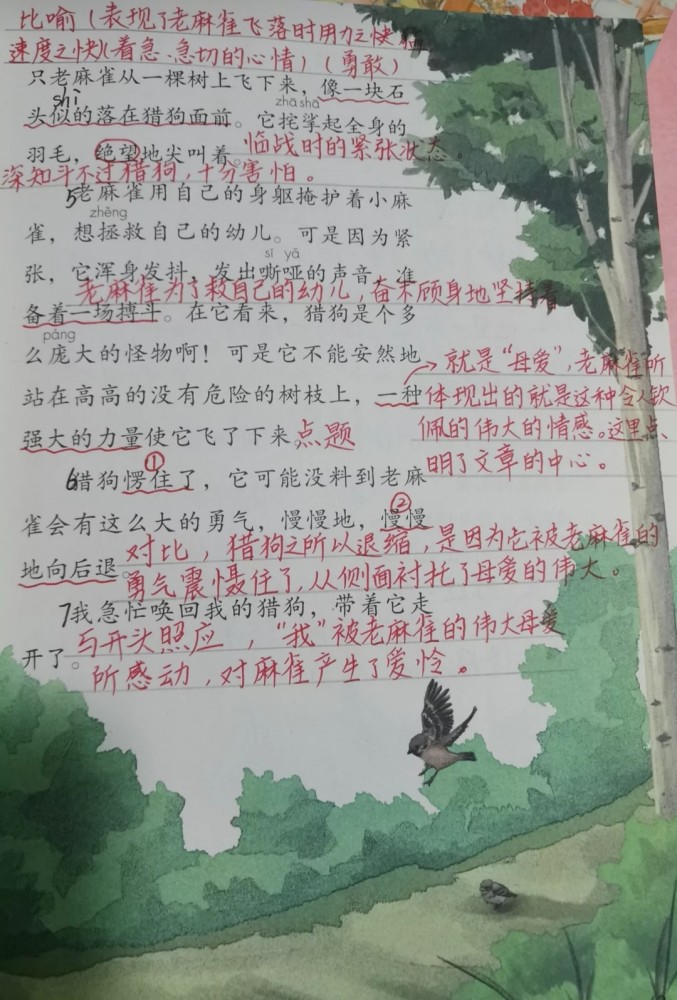 比喻(表现了老麻雀飞落时用力之快
速度之快)(着急、急切的心情)(勇敢)
只老麻雀从一棵树上飞下来，像一块石
shì
头似的落在猎狗面前。它挓挲起全身的
zhā shā
羽毛，绝望地尖叫着。临战时的紧张状态。
深知斗不过猎狗，十分害怕。
5老麻雀用自己的身躯掩护着小麻
zhěng
雀，想拯救自己的幼儿。可是因为紧
sī yā
张，它浑身发抖，发出嘶哑的声音，准
老麻雀为了救自己的幼儿，奋不顾身地坚持着
备着一场搏斗。在它看来，猎狗是个多
páng
么庞大的怪物啊！可是它不能安然地
就是“母爱”，老麻雀所
站在高高的没有危险的树枝上，一种
体现出的就是这种令人钦
强大的力量使它飞了下来 点题
佩的伟大的情感。这里点
①
明了文章的中心。
6猎狗愣住了，它可能没料到老麻
②
雀会有这么大的勇气，慢慢地，慢慢
对比，猎狗之所以退缩，是因为它被老麻雀的
地向后退。
勇气震慑住了，从侧面衬托了母爱的伟大。
7我急忙唤回我的猎狗，带着它走
与开头照应，“我”被老麻雀的伟大母爱
开了。
所感动，对麻雀产生了爱怜。